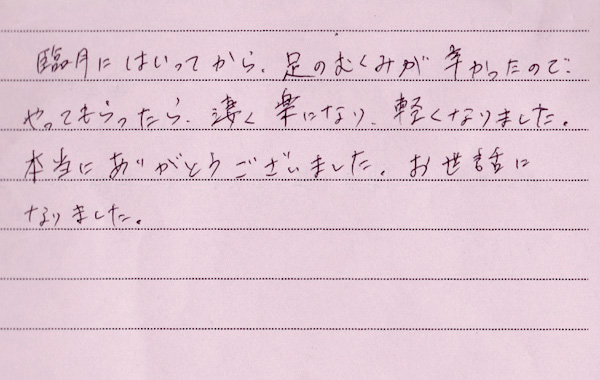 臨月にはいってから、足のむくみが辛かったので、
やってもらったら、凄く楽になり、軽くなりました。
本当にありがとうございました。お世話に
なりました。